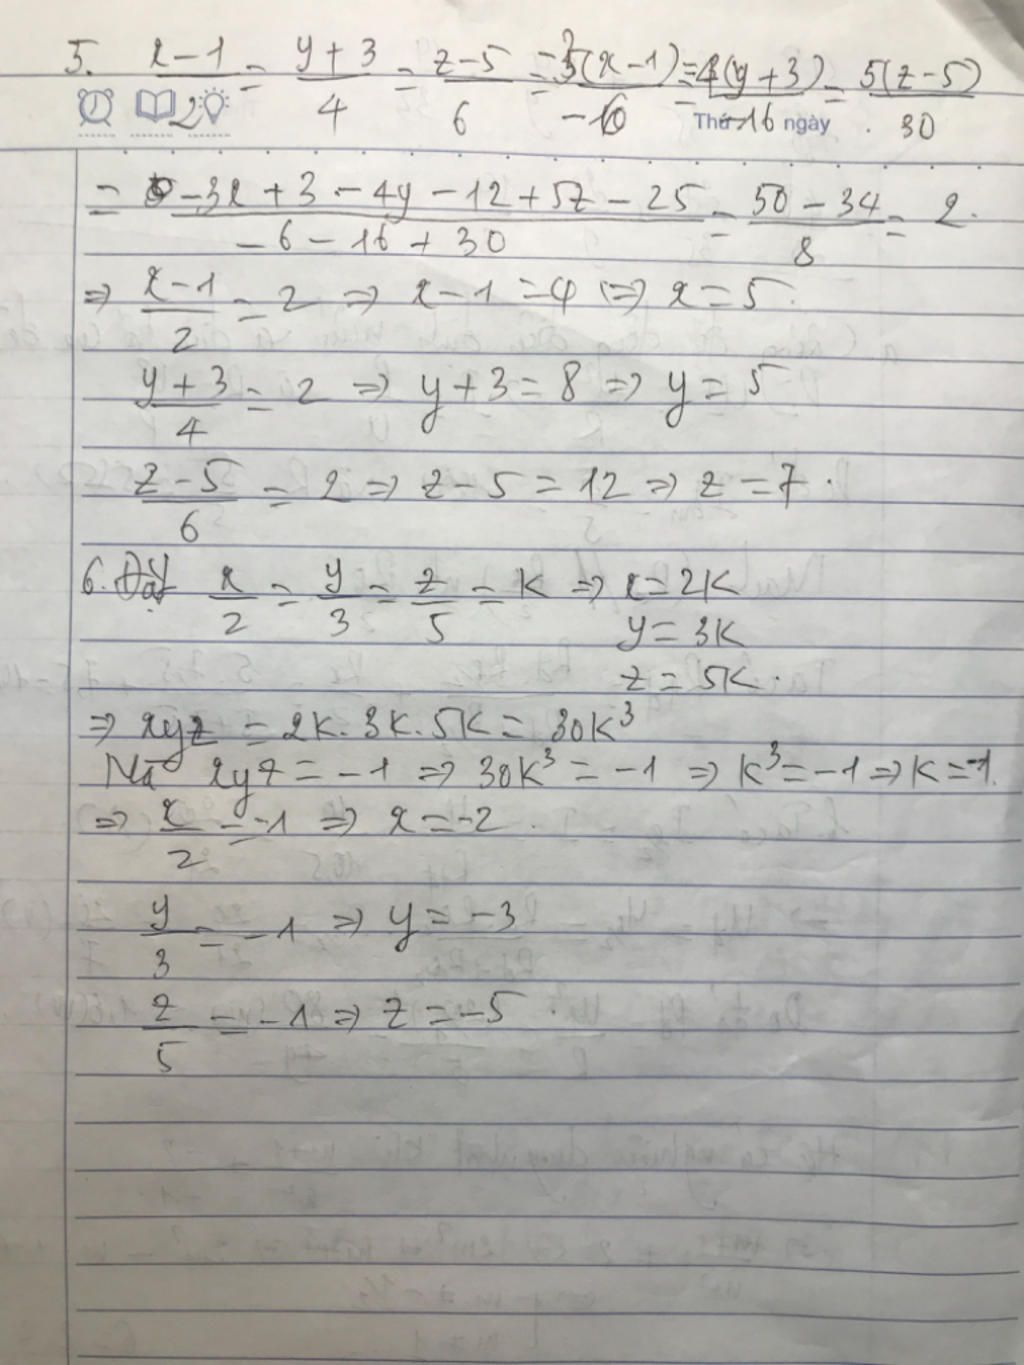 5. x-1/2 = y+3/4 = z-5/6 = -3(x-1)/-6 = -4(y+3)/-16 = 5(z-5)/30
Thứ ngày
= -3x + 3 - 4y - 12 + 5z - 25/-6 - 16 + 30 = 50 - 34/8 = 2.
⇒ x-1/2 = 2 ⇒ x - 1 = 4 ⇒ x = 5.
y + 3/4 = 2 ⇒ y + 3 = 8 ⇒ y = 5
z - 5/6 = 2 ⇒ z - 5 = 12 ⇒ z = 7.
6. Đặt x/2 = y/3 = z/5 = k ⇒ x = 2k
y = 3k
z = 5k.
⇒ xyz = 2k. 3k. 5k = 30k³
Mà xyz = -1 ⇒ 30k³ = -1 ⇒ k³ = -1 ⇒ k = -1.
⇒ x/2 = -1 ⇒ x = -2.
y/3 = -1 ⇒ y = -3
z/5 = -1 ⇒ z = -5.